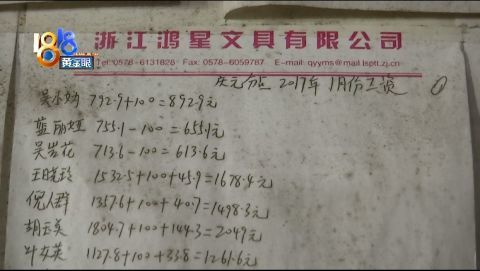 1818
黄金眼
浙江鸿星文具有限公司
Tel:0578-6131828 Fax: 0578-6059787 E-mail: qyyms@mail.lsptt.zj.cn
庆元分点 2017年 1月份工资 ①
吴小幼 792.9+100=892.9元
蓝丽娅 755.1-100=655.1元
吴岩花 713.6-100=613.6元
王晓玲 1532.5+100+45.9=1678.4元
倪人群 1357.6+100+40.7=1498.3元
胡云英 1804.7+100+144.3=2049元
叶女英 1127.8+100+33.8=1261.6元